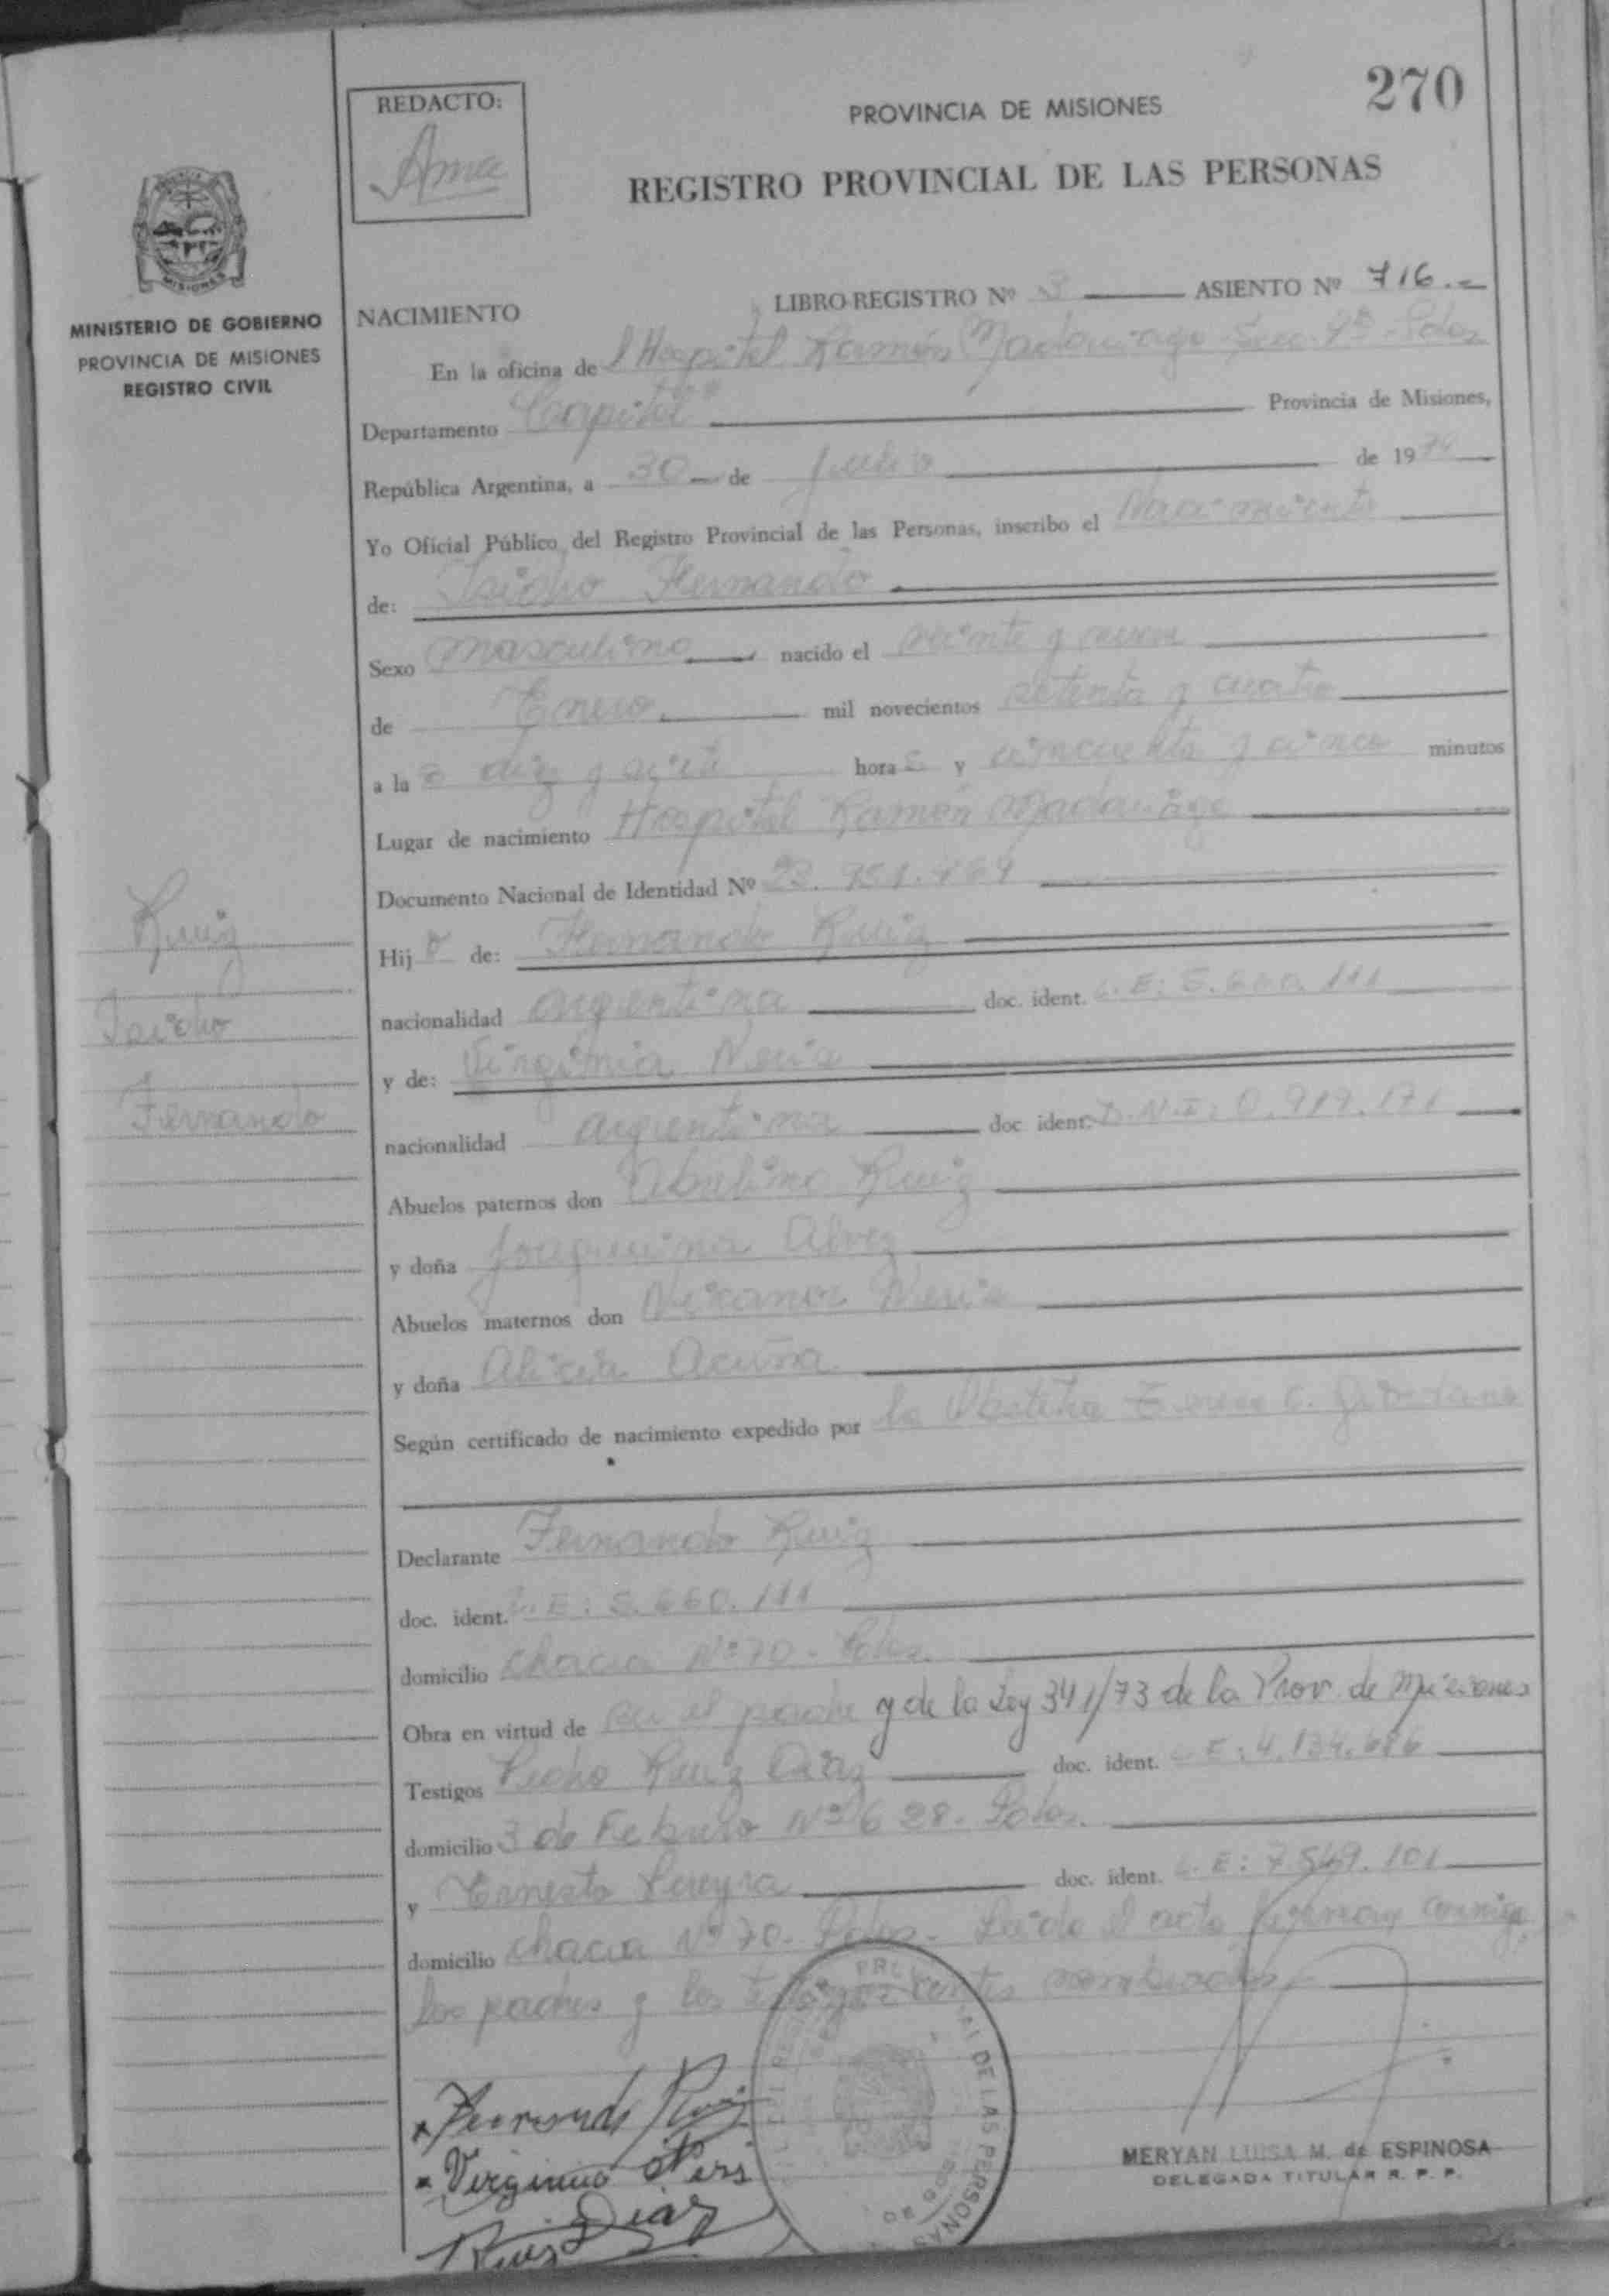 270
REDACTO:
PROVINCIA DE MISIONES
REGISTRO PROVINCIAL DE LAS PERSONAS
MISIONES
MINISTERIO DE GOBIERNO
PROVINCIA DE MISIONES
REGISTRO CIVIL
NACIMIENTO
LIBRO-REGISTRO Nº 3 ASIENTO Nº 716.-
En la oficina de l Hospital Ramón Madariaga
Departamento Capital Provincia de Misiones,
República Argentina, a 30 de de 1974
Yo Oficial Público del Registro Provincial de las Personas, inscribo el Nacimiento
de: Isidro Fernando
Sexo masculino nacido el veinte y nueve
de Enero mil novecientos setenta y cuatro
a la s diez y hora s y cincuenta y cinco minutos
Lugar de nacimiento Hospital Ramón Madariaga
Documento Nacional de Identidad Nº
Hij o de: Fernando Ruiz
nacionalidad argentina doc. ident. L.E: 5.660.111
y de: Virginia Neris
nacionalidad argentina doc ident. D.N.I:
Abuelos paternos don Ruiz
y doña Joaquina Alvez
Abuelos maternos don Nicanor Neris
y doña Alicia Acuña
Según certificado de nacimiento expedido por la Obstetra
Ruiz
Isidro
Fernando
Declarante Fernando Ruiz
doc. ident. L.E: 5.660.111
domicilio chacra Nº 70 - Pdas.
Obra en virtud de ser el padre y de la Ley 341/73 de la Prov. de Misiones
Testigos Pedro Ruiz Diaz doc. ident. L.E: 4.134.686
domicilio 3 de Febrero Nº 628. Pdas.
y Ernesto Pereyra doc. ident. L.E: 7.549.101
domicilio chacra Nº 70. Pdas. Leido el acta firman conmigo
los padres y los testigos nombrados
Fernando Ruiz
Virginia Neris
Ruiz Diaz
DE LAS PERSONAS
MERYAN LUISA M. de ESPINOSA
DELEGADA TITULAR R. P. P.